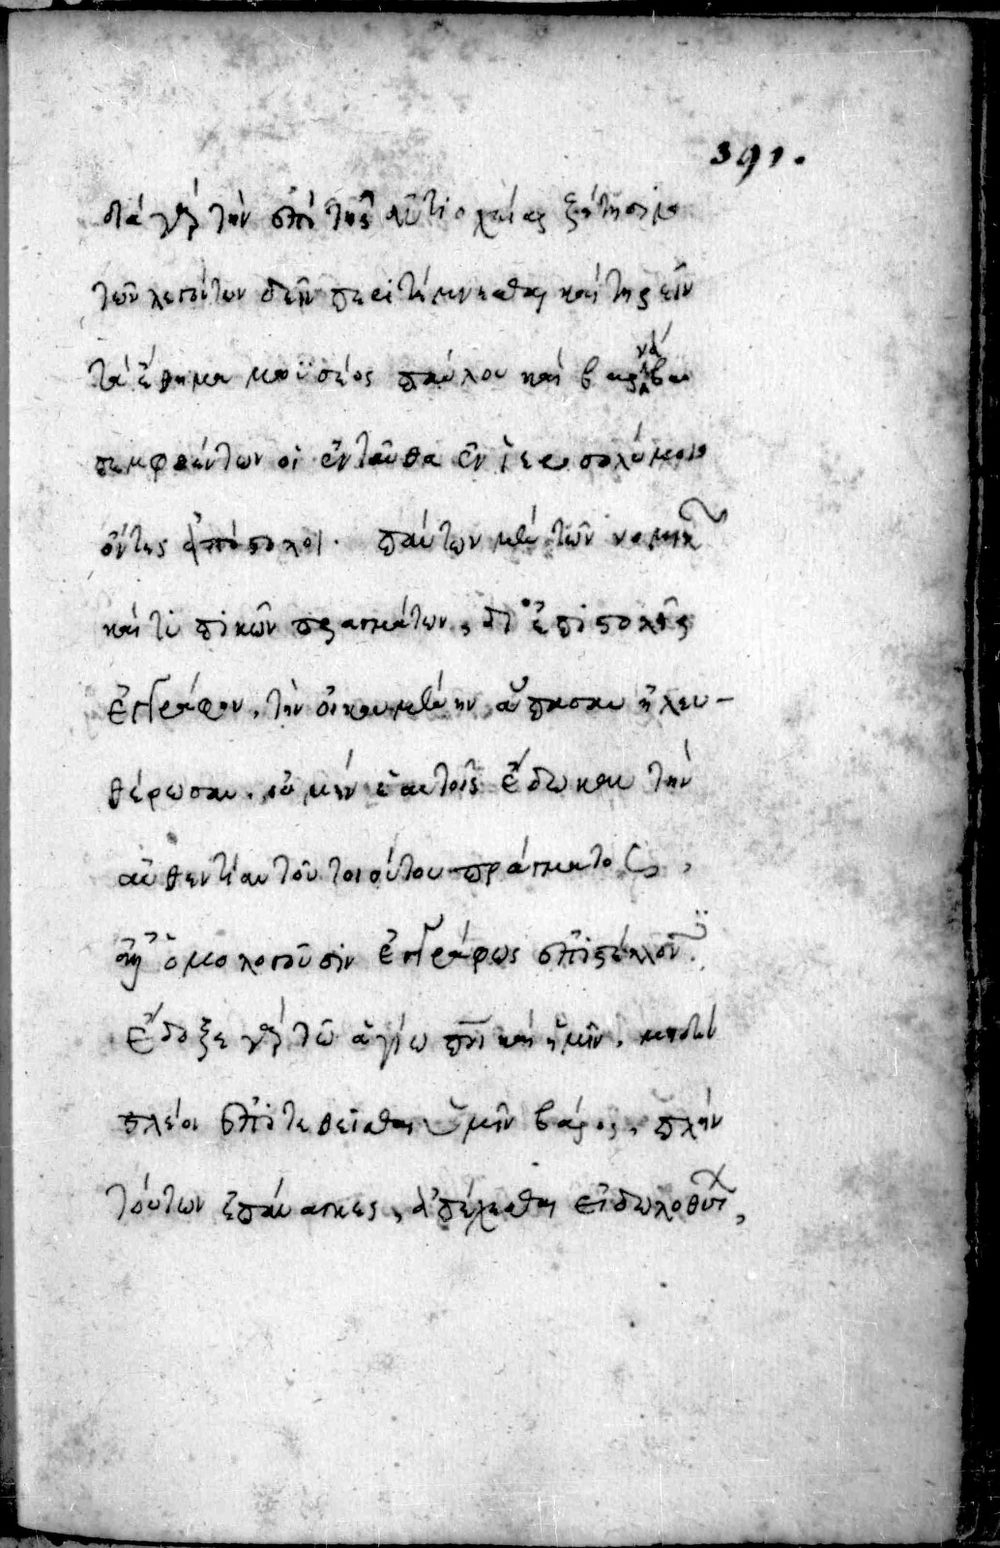 391.
διά γὰρ τὴν ἐπὶ τῆς ἀντιοχείας ζήτησιν
τῶν λεγόντων δεῖν περιτέμνεσθαι καὶ τηρεῖν
τὰ ἔθημα μωϋσέος παύλου καὶ βαρνάβα
πεμφθέντων οἱ ἐνταῦθα ἐν ἱεροσολύμοις
ὄντες ἀπόστολοι. πάντων μὲν τῶν νομικῶν
καὶ τυπικῶν πραγμάτων, δι' ἐπιστολῆς
ἐγγράφου, τὴν οἰκουμένην ἅπασαν ἠλευ-
θέρωσαν. οὐ μὴν ἑαυτοῖς ἔδωκαν τὴν
αὐθεντίαν τοῦ τοιούτου πράγματος,
ὁμολογοῦσιν ἐγγράφως ἐπιστέλλοντες.
ἔδοξε γὰρ τῶ ἁγίω πνι καὶ ἡμῖν, μηδὲν
πλέον ἐπιτεθεῖσθαι ὑμῖν βάρος, πλὴν
τούτων ἐπάναγκες, ἀπέχεσθαι εἰδωλοθύτων,